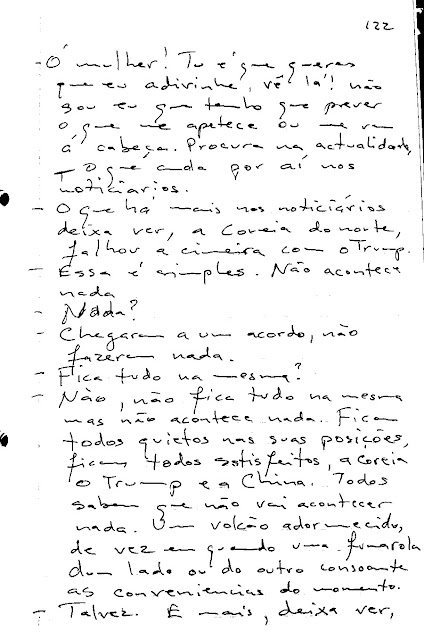 122
- Ó mulher! Tu é que queres
que eu adivinhe, vê lá! não
sou eu que tenho que prever
o que me apetece ou me vem
á cabeça. Procura na actualidade,
o que anda por aí nos
noticiarios.
- O que há mais nos noticiários
deixa ver, a Coreia do norte,
falhou a cimeira com o Trump.
- Essa é simples. Não acontece
nada
- Nada?
- Chegaram a um acordo, não
fazerem nada.
- Fica tudo na mesma?
- Não, não fica tudo na mesma
mas não acontece nada. Ficam
todos quietos nas suas posições,
ficam todos satisfeitos, a Coreia
o Trump e a China. Todos
sabem que não vai acontecer
nada. Um volcão adormecido,
de vez em quando uma fumarola
dum lado ou do outro consoante
as conveniencias do momento.
- Talvez. E mais, deixa ver,